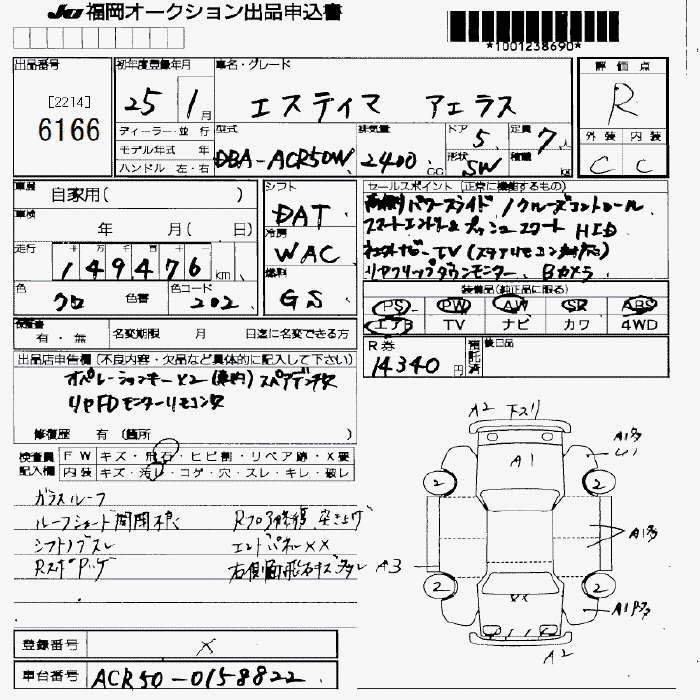 JU 福岡オークション出品申込書
*1001238690*
出品番号
[2214]
6166
初年度登録年月
25 1月
車名・グレード
エスティマ アエラス
評価点
R
外装 内装
C C
ディーラー・並行
モデル年式 年
ハンドル 左・右
型式
DBA-ACR50W
排気量
2400 CC
ドア
5
形状
SW
定員
7人
積載
kg
車歴
自家用( )
車検
年 月( 日)
走行
149476 km
色
クロ
色替
色コード
202
シフト
DAT
冷房
WAC
燃料
GS
セールスポイント (正常に機能するもの)
両側パワースライド / クルーズコントロール
スマートエントリー&プッシュスタート HID
TV (ステアリモコン
リヤフリップダウンモニター、Bカメラ
装備品(純正品に限る)
PS PW AW SR ABS
エアB TV ナビ カワ 4WD
R券
14340円
預託済
後日品
有・無
名変期限 月 日迄に名変できる方
出品店申告欄 (不良内容・欠品など具体的に記入して下さい)
オペレーションキー×2 スペアインキ欠
リヤFDモニターリモコン欠
修復歴 有 (箇所 )
検査員記入欄
FW キズ・飛石・ヒビ割・リペア跡・X要
内装 キズ・汚レ・コゲ・穴・スレ・キレ・破レ
ガラスルーフ
ルーフシェード開閉不良
シフトノブスレ
Rフロア修移、突き上げ
エンドパネルXX
右側面飛石キズ多
A2 下スリ
A1
A1多
2 2
A1多
A3
2 2
XX
A2
登録番号
×
車台番号
ACR50-0158822